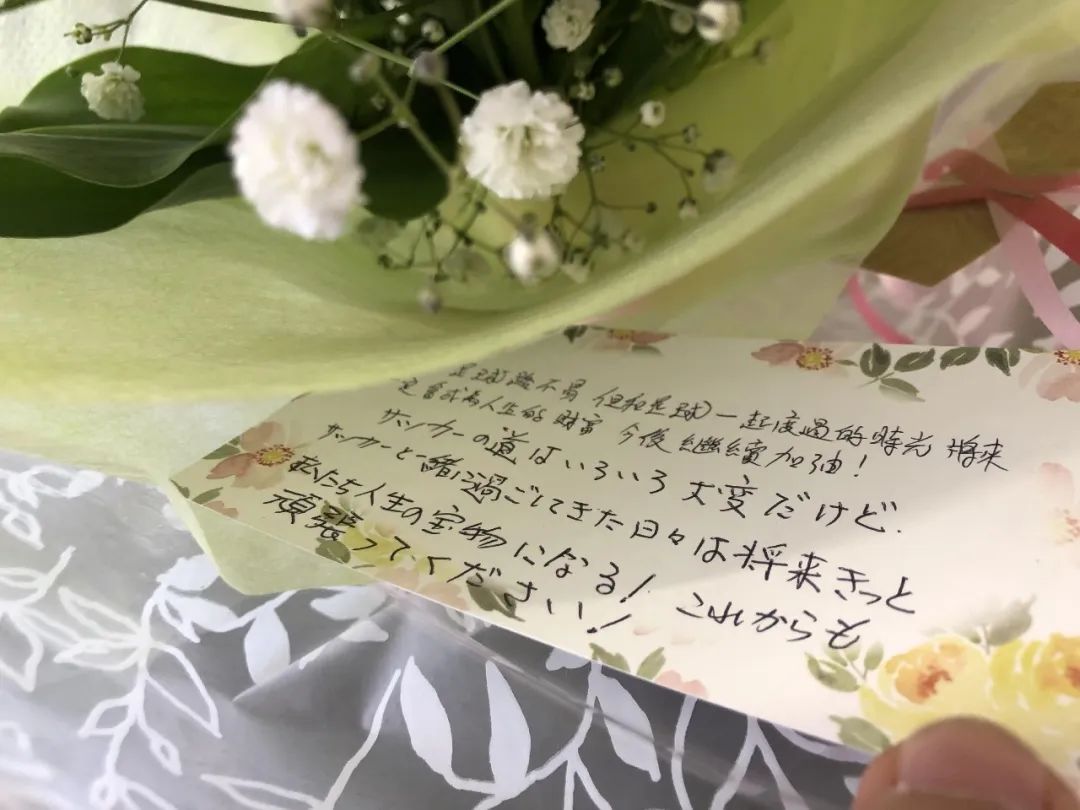 足球路不易 但和足球一起度過的時光 將來
定會成為人生的財富 今後繼續加油!
サッカーの道はいろいろ大変だけど.
サッカーと一緒に過ごしてきた日々は将来きっと
私たち人生の宝物になる! これからも
頑張ってください!